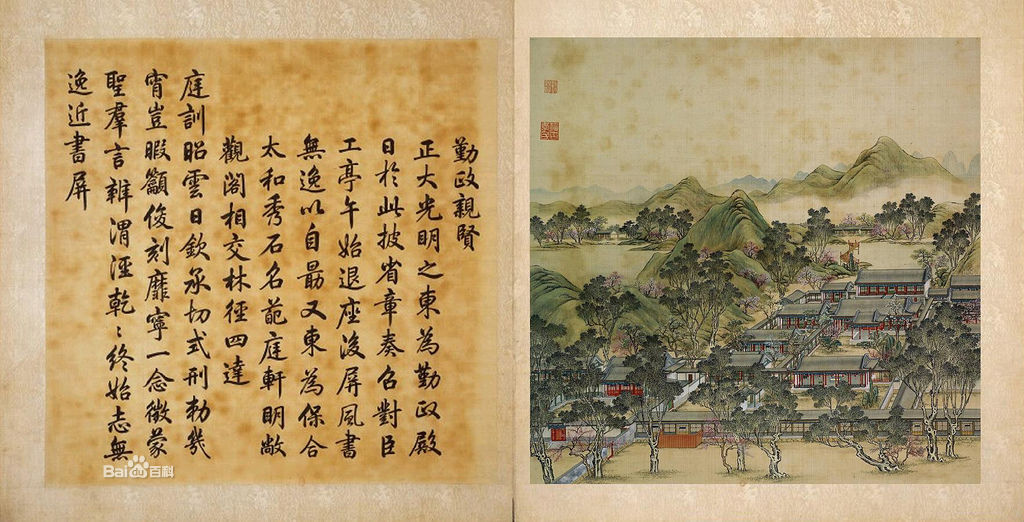 勤政親賢
正大光明之東為勤政殿
日於此披省章奏召對臣
工亭午始退座後屏風書
無逸以自朂又東為保合
太和秀石名葩庭軒明敞
觀閣相交林徑四達
庭訓昭雲日欽承切式刑勑幾
宵豈暇籲俊刻靡寧一念徵蒙
聖羣言辨渭涇乾〻終始志無
逸近書屏
Bai百科